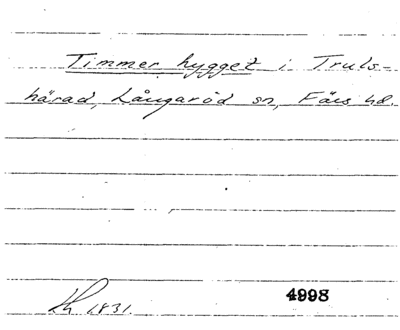 Timmer hygget i Truls-
härad, Långaröd sn, Färs hd.
Kh 1831. 4998